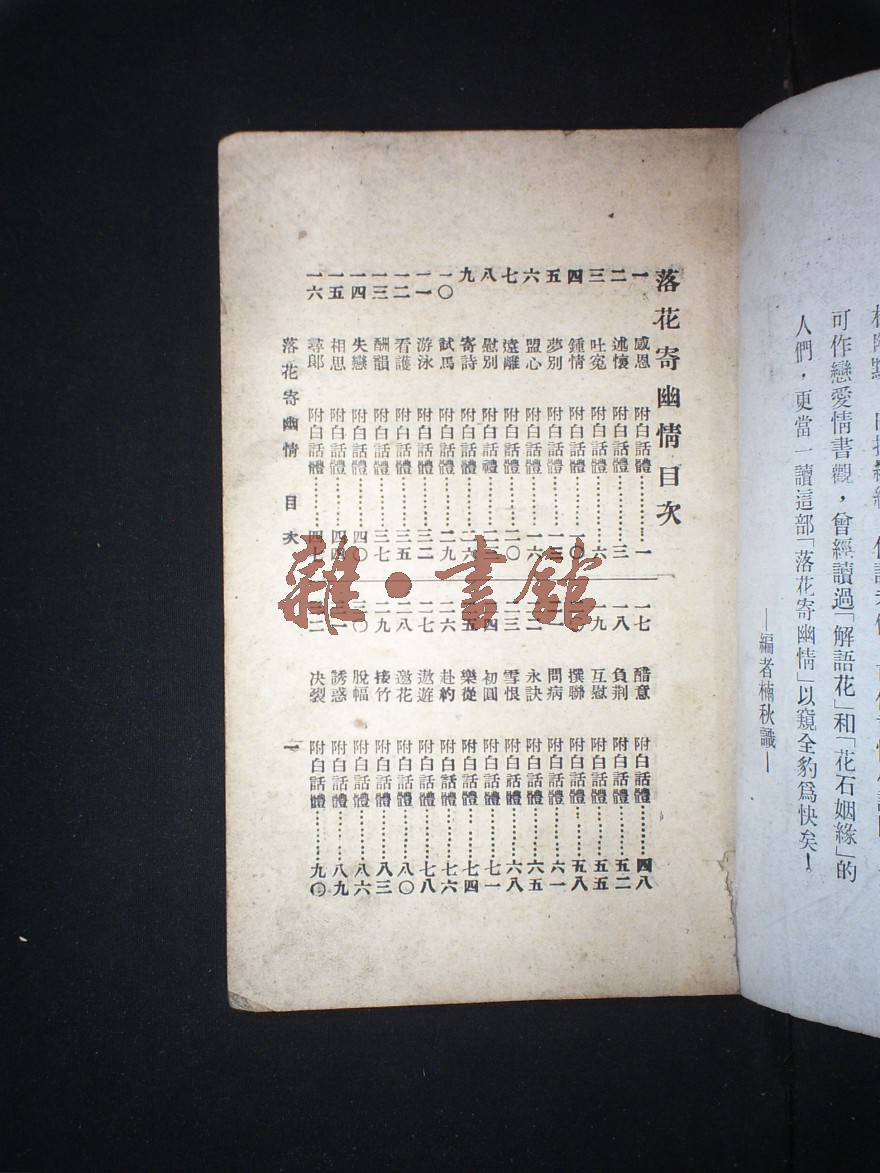 可作戀愛情書觀，曾經讀過「解語花」和「花石姻緣」的
人們，更當一讀這部「落花寄幽情」以窺全豹爲快矣！
—編者楠秋識—
落花寄幽情目次
一 感恩 附白話體………一
二 述懷 附白話體………三
三 吐冤 附白話體………六
四 鍾情 附白話體………一〇
五 夢別 附白話體………一三
六 盟心 附白話體………一六
七 遠離 附白話體………二〇
八 慰別 附白話禮………二三
九 寄詩 附白話體………二六
一〇 試馬 附白話體………二九
一一 游泳 附白話體………三二
一二 看護 附白話體………三五
一三 酬韻 附白話體………三七
一四 失戀 附白話體………四〇
一五 相思 附白話體………四四
一六 尋郎 附白話體………四七
一七 醋意 附白話體………四八
一八 負荆 附白話體………五二
一九 互慰 附白話體………五五
二〇 撰聯 附白話體………五八
二一 問病 附白話體………六一
二二 永訣 附白話體………六五
二三 雪恨 附白話體………六八
二四 初圓 附白話體………七一
二五 樂從 附白話體………七四
二六 赴約 附白話體………七六
二七 遨遊 附白話體………七八
二八 邀花 附白話體………八〇
二九 接竹 附白話體………八三
三〇 脫幅 附白話體………八六
三一 誘惑 附白話體………八九
三二 決裂 附白話體………九
落花寄幽情 目次 一
雜·書館